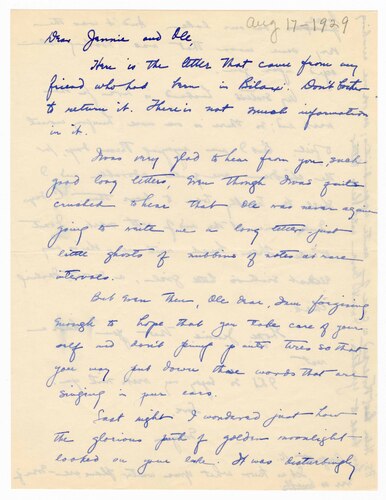 Aug 17-1929
Dear Jennie and Ole,
Here is the letter that came from my
friend who had been in Biloxi. Don't bother
to return it. There is not much information
in it.
I was very glad to hear from you such
good long letters, even though I was quite
crushed to hear that Ole was never again
going to write me a long letter - just
little ghosts of nubbins of notes at rare
intervals.
But even then, Ole dear, I am forgiving
enough to hope that you take care of your
self and don't pump up auto tires so that
you may put down those words that are
singing in your ears.
Last night I wondered just how
the glorious path of golden moonlight
looked on your lake. It was disturbingly